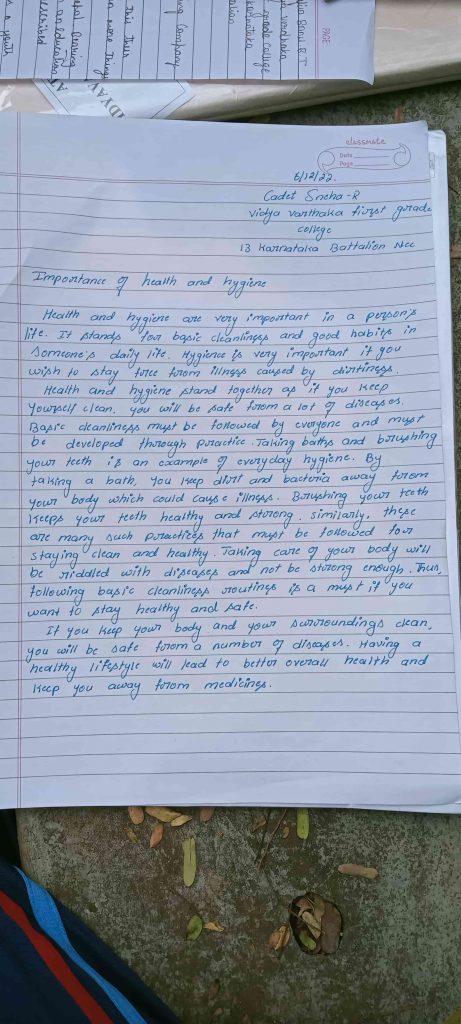 PAGE
classmate
Date
Page
6/12/22.
Cadet Sneha-R
vidya varthaka first grade
college
13 Karnataka Battalion Ncc
Importance of health and hygiene
Health and hygiene are very important in a person's
life. It stands for basic cleanliness and good habits in
someone's daily life. Hygiene is very important if you
wish to stay free from illness caused by dirtiness.
Health and hygiene stand together as if you keep
yourself clean, you will be safe from a lot of diseases.
Basic cleanliness must be followed by evryone and must
be developed through practice. Taking baths and brushing
your teeth is an example of everyday hygiene. By
taking a bath, you keep dirt and bacteria away from
your body which could cause illness. Brushing your teeth
keeps your teeth healthy and strong. similarly, these
are many such practices that must be followed for
staying clean and healthy. Taking care of your body will
be riddled with diseases and not be strong enough. Thus,
following basic cleanliness routines is a must if you
want to stay healthy and safe.
If you keep your body and your surroundings clean,
you will be safe from a number of diseases. Having a
healthy lifestyle will lead to better overall health and
keep you away from medicines.